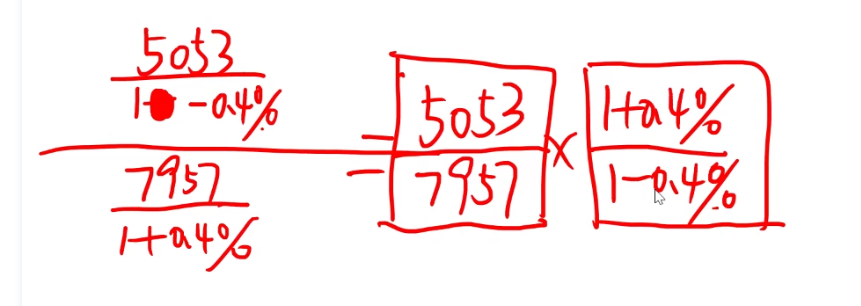 5053
1- -0.4%
7957
1+0.4%
=
5053
7957
×
1+0.4%
1-0.4%